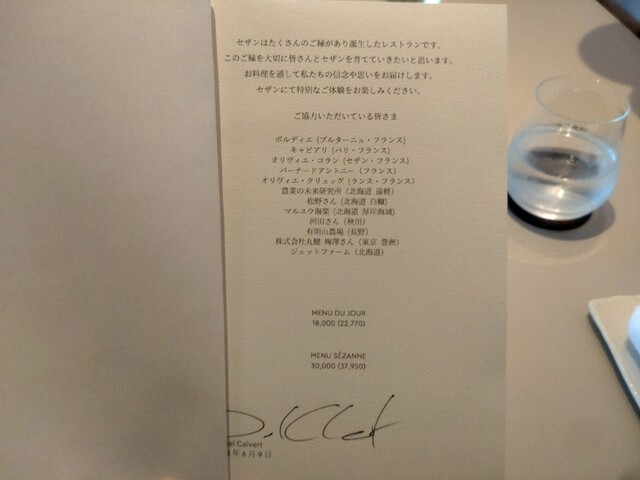 セザンはたくさんのご縁があり誕生したレストランです。
このご縁を大切に皆さんとセザンを育てていきたいと思います。
お料理を通して私たちの信念や思いをお届けします。
セザンにて特別なご体験をお楽しみください。
ご協力いただいている皆さま
ボルディエ (ブルターニュ・フランス)
キャビアリ (パリ・フランス)
オリヴィエ・コラン (セザン・フランス)
バーナードアントニー (フランス)
オリヴィエ・クリュッグ (ランス・フランス)
農業の未来研究所 (北海道 遠軽)
松野さん (北海道 白糠)
マルユウ海菜 (北海道 厚岸海域)
河田さん (秋田)
有明山農場 (長野)
株式会社丸健 梅澤さん (東京 豊洲)
ジェットファーム (北海道)
MENU DU JOUR
18,000 (22,770)
MENU SÉZANNE
30,000 (37,950)
el Calvert
年6月9日